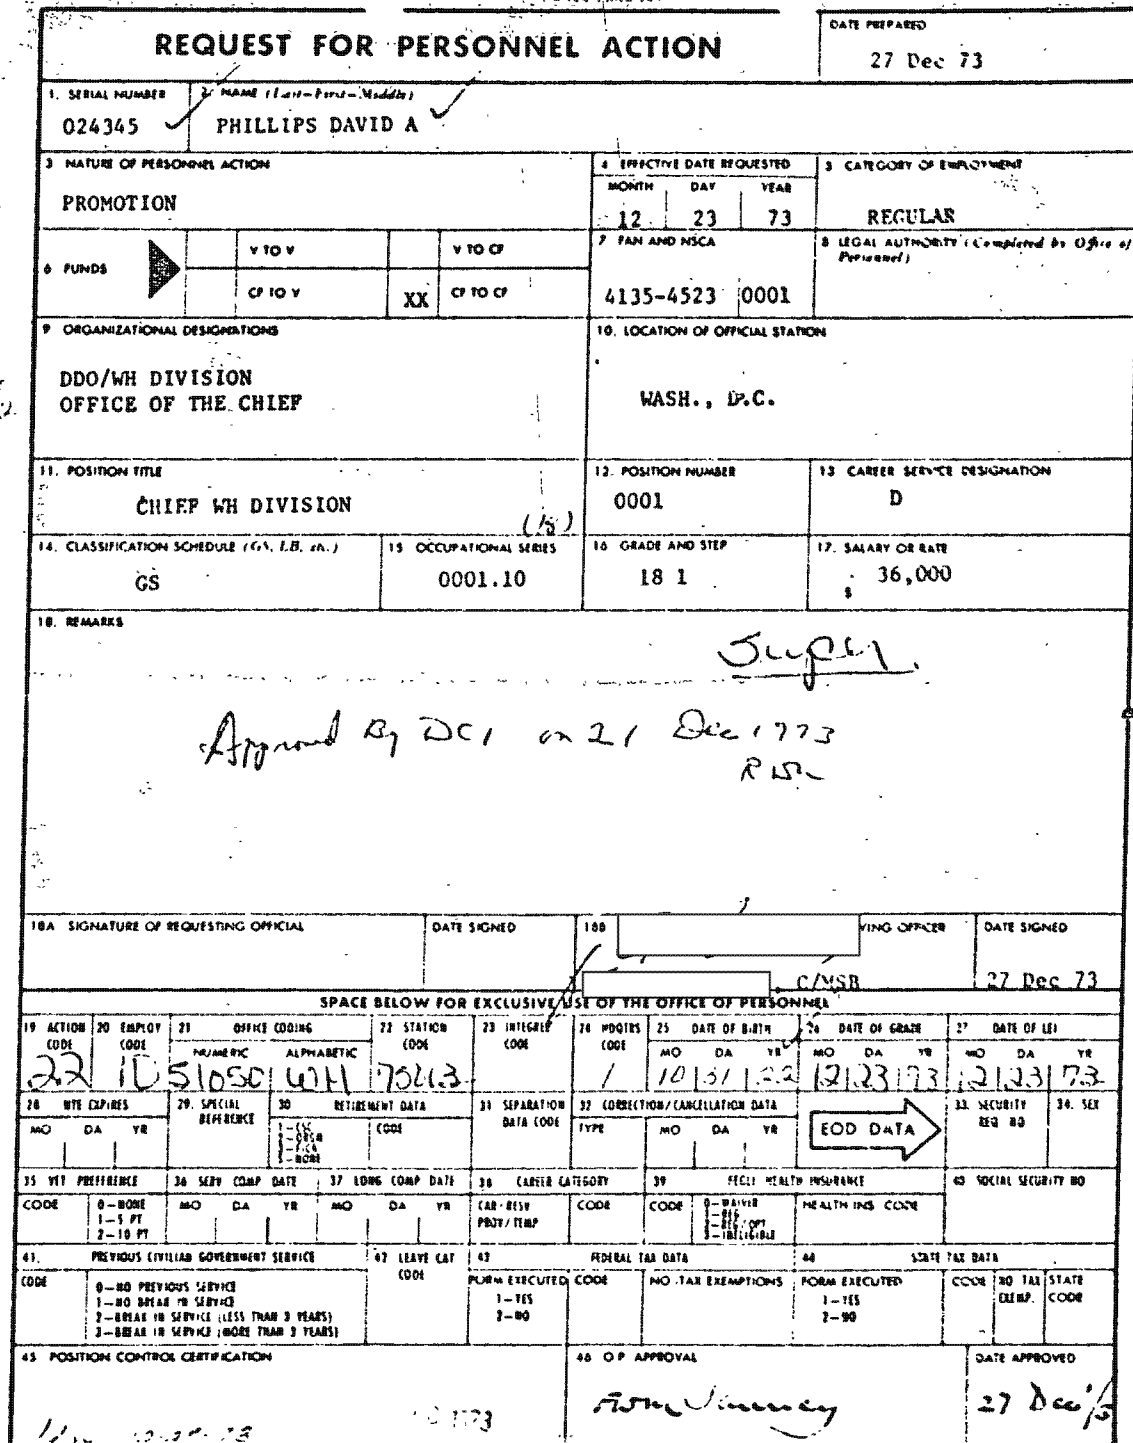 REQUEST FOR PERSONNEL ACTION
DATE PREPARED
27 Dec 73
1. SERIAL NUMBER
024345
2. NAME (Last-First-Middle)
PHILLIPS DAVID A
3 NATURE OF PERSONNEL ACTION
PROMOTION
4 EFFECTIVE DATE REQUESTED
MONTH DAY YEAR
12 23 73
5 CATEGORY OF EMPLOYMENT
REGULAR
6 FUNDS
V TO V
V TO CF
CF TO V
XX CF TO CF
7 FAN AND NSCA
4135-4523 0001
8 LEGAL AUTHORITY (Completed by Office of
Personnel)
9 ORGANIZATIONAL DESIGNATIONS
DDO/WH DIVISION
OFFICE OF THE CHIEF
10. LOCATION OF OFFICIAL STATION
WASH., D.C.
11. POSITION TITLE
CHIEF WH DIVISION
(18)
12. POSITION NUMBER
0001
13 CAREER SERVICE DESIGNATION
D
14. CLASSIFICATION SCHEDULE (GS, LB, etc.)
GS
15 OCCUPATIONAL SERIES
0001.10
16 GRADE AND STEP
18 1
17. SALARY OR RATE
$ 36,000
18. REMARKS
Approved By DCI on 21 Dec 1973
18A SIGNATURE OF REQUESTING OFFICIAL
DATE SIGNED
18B
VING OFFICER
C/MSB
DATE SIGNED
27 Dec 73
SPACE BELOW FOR EXCLUSIVE USE OF THE OFFICE OF PERSONNEL
19 ACTION CODE
22
20 EMPLOY CODE
10
21 OFFICE CODING
NUMERIC ALPHABETIC
51050 WH
22 STATION CODE
75013
23 INTEGREE CODE
24 HDQTRS CODE
1
25 DATE OF BIRTH
MO DA YR
10 31 22
26 DATE OF GRADE
MO DA YR
12 23 73
27 DATE OF LEI
MO DA YR
12 23 73
28 NTE EXPIRES
MO DA YR
29. SPECIAL REFERENCE
30 RETIREMENT DATA
1-CSC
3-FICA
5-NONE
CODE
31 SEPARATION DATA CODE
32 CORRECTION/CANCELLATION DATA
TYPE MO DA YR
EOD DATA
33. SECURITY REQ NO
34. SEX
35 VET PREFERENCE
CODE
0-NONE
1-5 PT
2-10 PT
36 SERV COMP DATE
MO DA YR
37 LONG COMP DATE
MO DA YR
38 CAREER CATEGORY
CAR-RESV
PROV/TEMP
CODE
39 FEGLI HEALTH INSURANCE
CODE
0-WAIVER
1-REG
2-REG/OPT
3-INELIGIBLE
HEALTH INS CODE
40 SOCIAL SECURITY NO
41. PREVIOUS CIVILIAN GOVERNMENT SERVICE
CODE
0-NO PREVIOUS SERVICE
1-NO BREAK IN SERVICE
2-BREAK IN SERVICE (LESS THAN 3 YEARS)
3-BREAK IN SERVICE (MORE THAN 3 YEARS)
42 LEAVE CAT CODE
43 FEDERAL TAX DATA
FORM EXECUTED
1-YES
2-NO
CODE
NO TAX EXEMPTIONS
44 STATE TAX DATA
FORM EXECUTED
1-YES
2-NO
CODE
NO TAX EXEMP.
STATE CODE
45 POSITION CONTROL CERTIFICATION
46 O P APPROVAL
DATE APPROVED
27 Dec